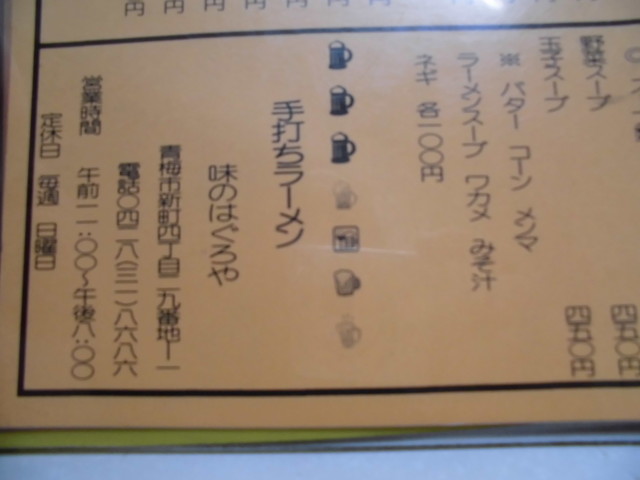 円 円 円 円 円 円 円
野菜スープ 四五〇円
玉子スープ 四五〇円
※ バター コーン メンマ
ラーメンスープ ワカメ みそ汁
ネギ 各一〇〇円
手打ちラーメン
味のはぐろや
青梅市新町四丁目二九番地ー一
電話〇四二八(三一)八六八六
営業時間 午前一一:〇〇~午後八:〇〇
定休日 毎週 日曜日